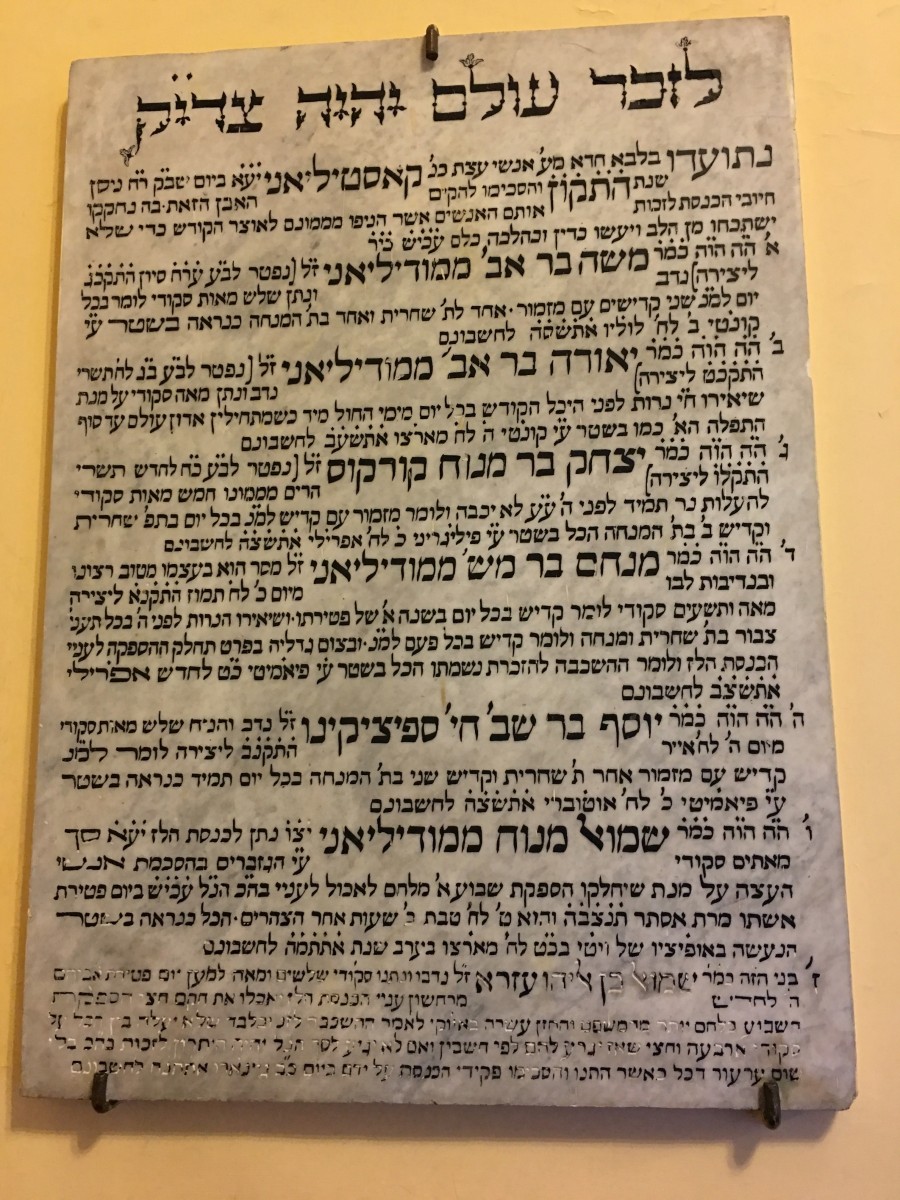 לזכר עולם יהיה צדיק
נתועדו בלבא חדא מע' אנשי עצת כנ' קאסטיליאני יע"א ביום שבק ר"ח ניסן
שנת התקון והסכימו להקים האבן הזאת בה נחקקו
חיובי הכנסת לזכות אותם האנשים אשר הניפו מממונם לאוצר הקודש כדי שלא
ישתכחו מן הלב ויעשו כדין וכהלכה כלם
א' הה הוה כמר משה בר אב' ממודיליאני זל נפטר לבע ערח סיון התקכב
ליצירה נדב ונתן שלש מאות סקודי לומר בכל
יום למנ שני קדישים עם מזמור אחד לת' שחרית ואחד בת' המנחה כנראה בשטר עי
קונטי ב' לח' לוליו אתשסה לחשבונם
ב' הה הוה כמר יאודה בר אב' ממודיליאני זל נפטר לבע בנ לח תשרי
התקכט ליצירה נדב ונתן מאה סקודי על מנת
שיאירו חי נרות לפני היכל הקודש בכל יום מימי החול מיד כשמתחילין אדון עולם עד סוף
התפלה הא' כמו בשטר עי קונטי ה' לח' מארצו אתשעב לחשבונם
ג' הה הוה כמר יצחק בר מנוח קורקוס זל נפטר לבע כח לחדש תשרי
התקלו ליצירה הרים מממונו חמש מאות סקודי
להעלות נר תמיד לפני ה' עע לא יכבה ולומר מזמור עם קדיש למנ בכל יום בתפ' שחרית
וקדיש ב' בת' המנחה הכל בשטר עי פיליגריני כ' לח' אפרילי אתשצה לחשבונם
ד' הה הוה כמר מנחם בר מש' ממודיליאני זל מסר הוא בעצמו מטוב רצונו
ובנדיבות לבו מיום כ' לח' תמוז התקנא ליצירה
מאה ותשעים סקודי לומר קדיש בכל יום בשנה א' של פטירתו ושיאירו הנרות לפני ה' בכל תעני
צבור בת' שחרית ומנחה ולומר קדיש בכל פעם למנ ובצום גדליה בפרט תחלק ההספקה לעניי
הכנסת הלז ולומר ההשכבה להזכרת נשמתו הכל בשטר עי פיאמיטי כט לחדש אפרילי
אתשצב לחשבונם
ה' הה הוה כמר יוסף בר שב' חי' ספיציקינו זל נדב והניח שלש מאות סקודי
מיום ה' לח' אייר התקנב ליצירה לומר למנ
קדיש עם מזמור אחר ת' שחרית וקדיש שני בת' המנחה בכל יום תמיד כנראה בשטר
עי פיאמיטי כ' לח' אוטוברי אתשצה לחשבונם
ו' הה הוה כמר שמואל מנוח ממודיליאני יצו נתן לכנסת הלז יעא סך
מאתים סקודי עי הגזברים בהסכמת אנשי
העצה על מנת שיחלקו הספקת שבוע א' מלחם לאכול לעניי בהכ הנל עכיש ביום פטירת
אשתו מרת אסתר תנצבה והוא ט' לח' טבת שעות אחר הצהרים הכל כנראה בשטר
הנעשה באופיציו של ויטי בכט לח' מארצו בערב שנת אתתמה לחשבונם
ז' בני הזה כמר שמואל בן עזרא זל נדבו ונתנו סקודי שלשים ומאה למען יום פטירת
ה' לחדש מרחשון עניי הכנסת הלז
השבוע והחזן עשרה
סקודי ארבעה וחצי לפי חשבון ואם לא
שום ערעור דכל כאשר התנו והסכימו פקידי הכנסת על ידם ביום לחשבונם